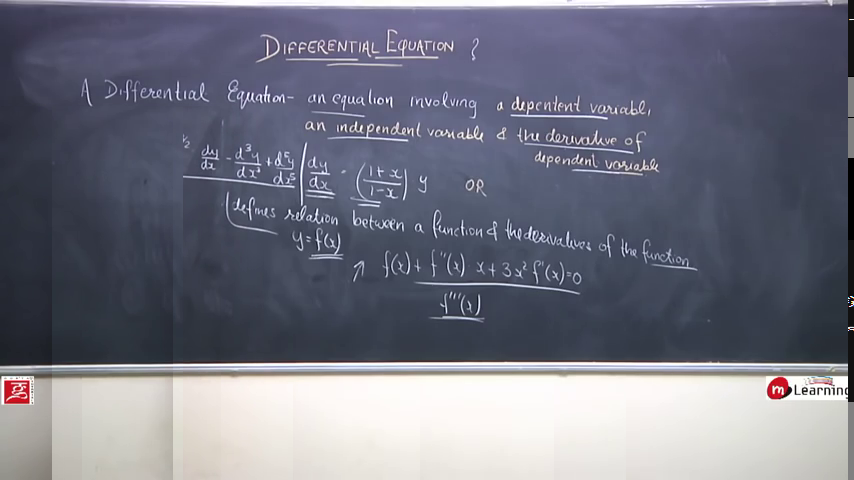 DIFFERENTIAL EQUATION ?
A Differential Equation - an equation involving a depentent variable,
an independent variable & the derivative of
dependent variable
½ dy/dx - d³y/dx³ + d⁵y/dx⁵ | dy/dx = (1+x/1-x) y OR
defines relation between a function & the derivatives of the function
y = f(x)
f(x) + f''(x) x + 3x² f'(x) = 0
f''''(x)
m Learning